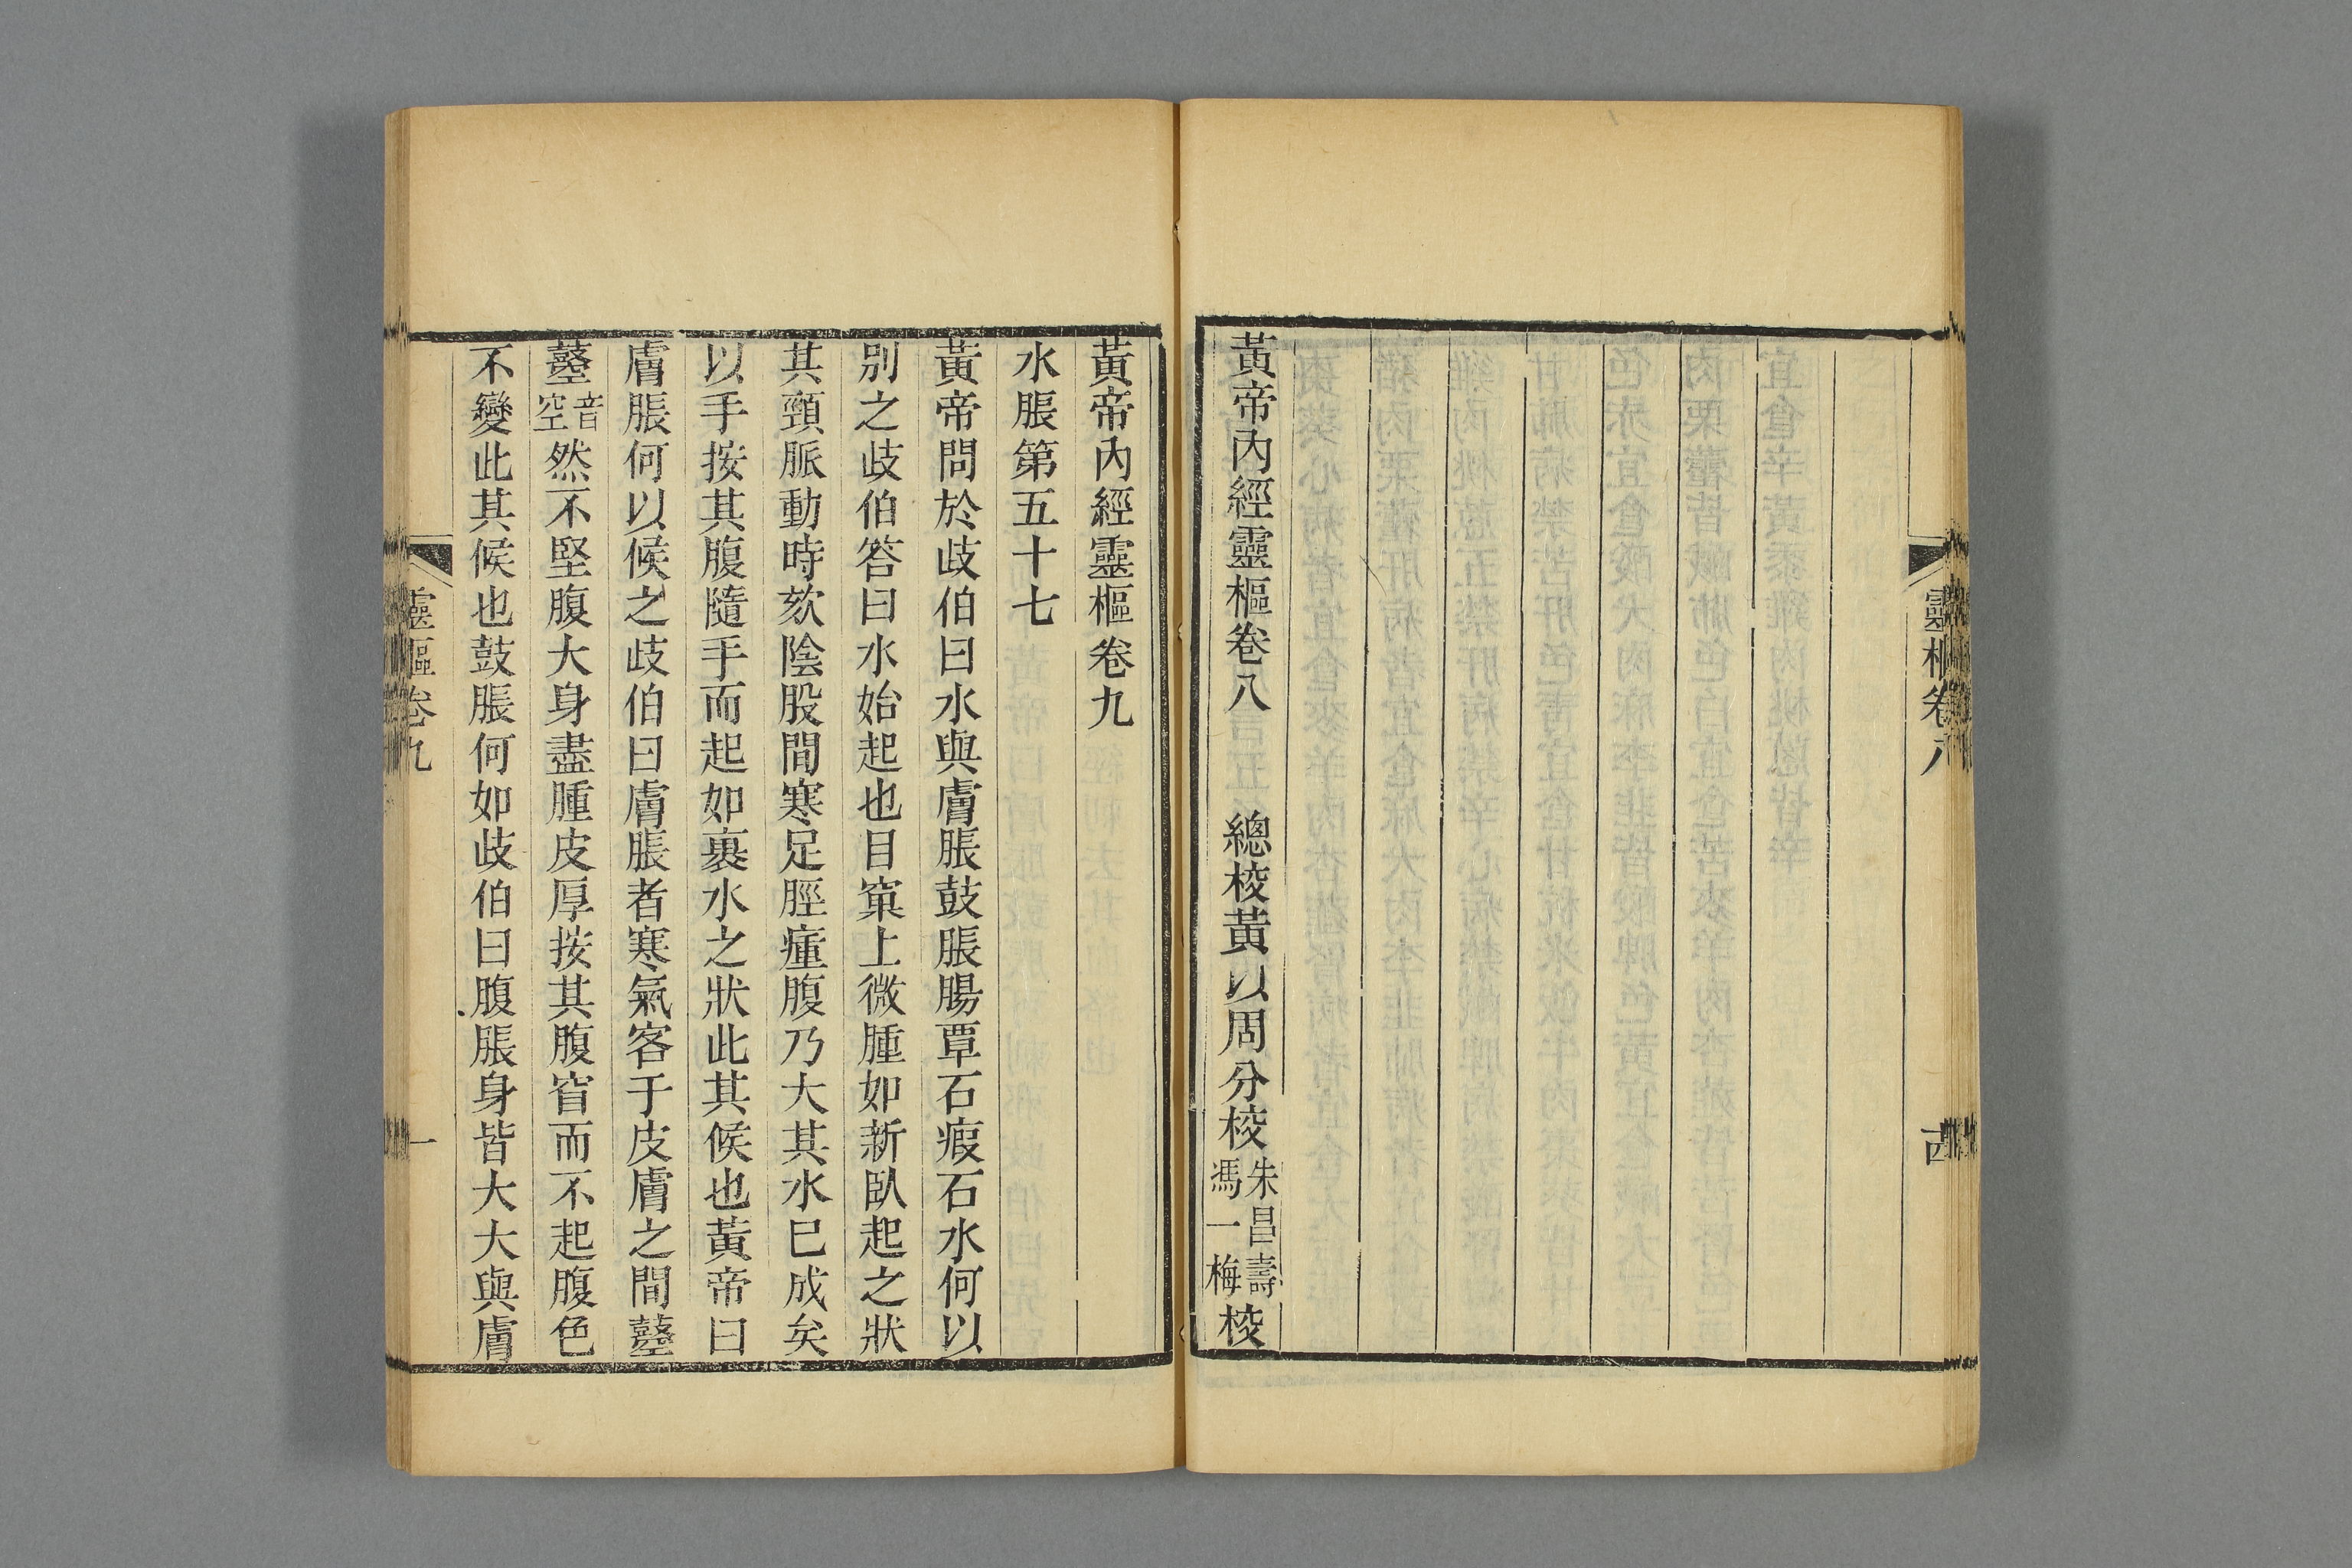 靈樞卷八
黃帝內經靈樞卷八　總校黃以周分校朱昌壽馮一梅校
黃帝內經靈樞卷九
水脹第五十七
黃帝問於歧伯曰水與膚脹鼓脹腸覃石瘕石水何以
別之歧伯答曰水始起也目窠上微腫如新臥起之狀
其頸脈動時欬陰股間寒足脛瘇腹乃大其水已成矣
以手按其腹隨手而起如裹水之狀此其候也黃帝曰
膚脹何以候之歧伯曰膚脹者寒氣客于皮膚之間鼞
鼞音空然不堅腹大身盡腫皮厚按其腹窅而不起腹色
不變此其候也鼓脹何如歧伯曰腹脹身皆大大與膚
靈樞卷九
一